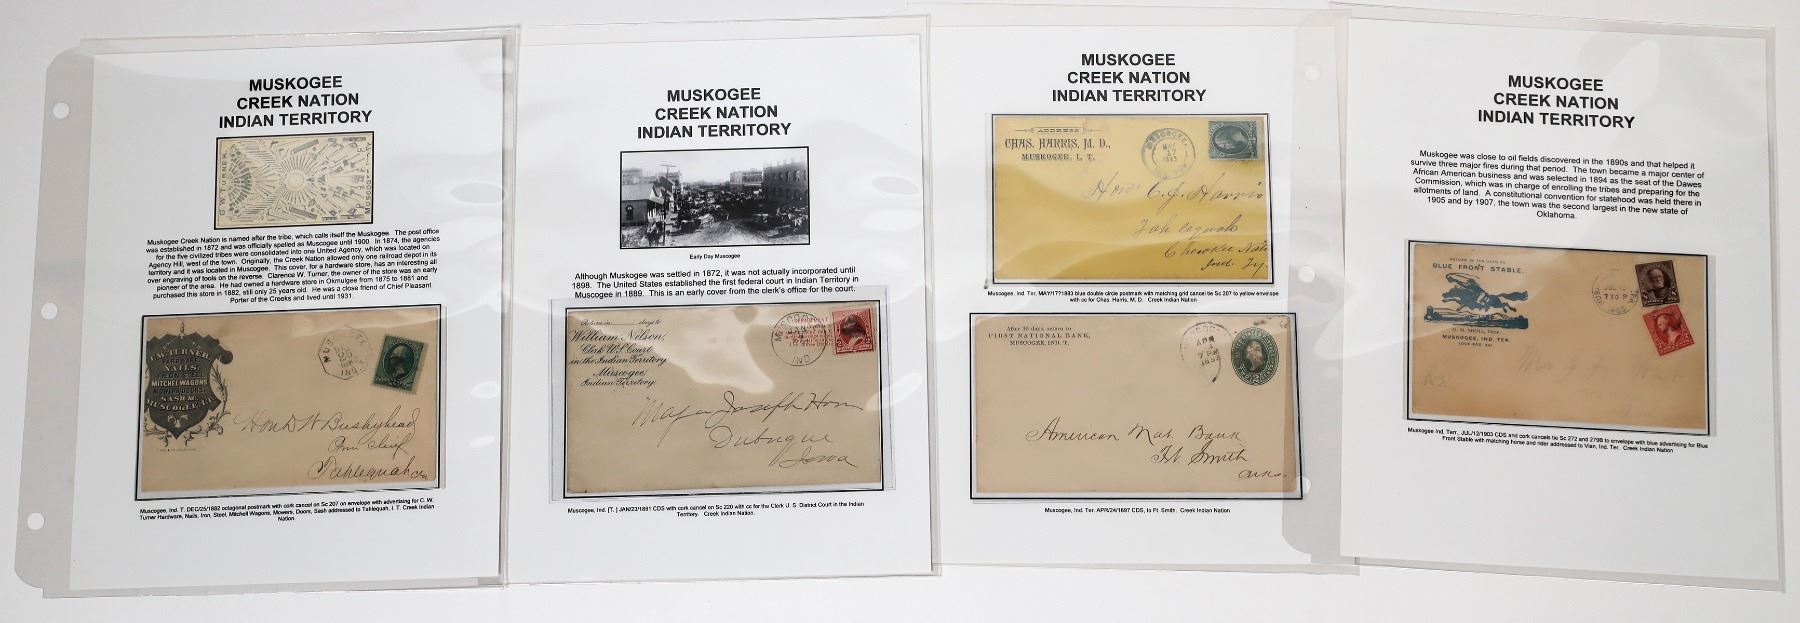 MUSKOGEE
CREEK NATION
INDIAN TERRITORY
C.W. TURNER
Muskogee Creek Nation is named after the tribe, which calls itself the Muskogee. The post office
was established in 1872 and was officially spelled as Muscogee until 1900. In 1874, the agencies
for the five civilized tribes were consolidated into one United Agency, which was located on
Agency Hill, west of the town. Originally, the Creek Nation allowed only one railroad depot in its
territory and it was located in Muscogee. This cover, for a hardware store, has an interesting all
over engraving of tools on the reverse. Clarence W. Turner, the owner of the store was an early
pioneer of the area. He had owned a hardware store in Okmulgee from 1875 to 1881 and
purchased this store in 1882, still only 25 years old. He was a close friend of Chief Pleasant
Porter of the Creeks and lived until 1931.
C.W. TURNER,
HARDWARE
NAILS,
IRON, STEEL
MITCHEL WAGONS
SASH &C.
MUSCOGEE, I.T.
Hon D W Bushyhead
Prin Chief
Tahlequah CN
Muscogee, Ind. T. DEC/25/1882 octagonal postmark with cork cancel on Sc 207 on envelope with advertising for C. W.
Turner Hardware, Nails, Iron, Steel, Mitchell Wagons, Mowers, Doors, Sash addressed to Tahlequah, I. T. Creek Indian
Nation.
MUSKOGEE
CREEK NATION
INDIAN TERRITORY
Early Day Muscogee
Although Muskogee was settled in 1872, it was not actually incorporated until
1898. The United States established the first federal court in Indian Territory in
Muscogee in 1889. This is an early cover from the clerk's office for the court.
Return in ____ days to
William Nelson,
Clerk U.S. Court
in the Indian Territory
Muscogee
Indian Territory
Major Joseph Horn
Dubuque
Iowa
Muscogee, Ind. [T. ] JAN/23/1891 CDS with cork cancel on Sc 220 with cc for the Clerk U. S. District Court in the Indian
Territory. Creek Indian Nation.
MUSKOGEE
CREEK NATION
INDIAN TERRITORY
ADDRESS
CHAS. HARRIS, M. D.,
MUSKOGEE, I. T.
MAY
17
1883
Hon. C. J. Harris
Tahlequah
Cherokee Nation
Ind. Ty.
Muscogee, Ind. Ter. MAY/17?1883 blue double circle postmark with matching grid cancel tie Sc 207 to yellow envelope
with cc for Chas. Harris, M. D. Creek Indian Nation
After 10 days, return to
FIRST NATIONAL BANK,
MUSCOGEE, IND. T.
American Nat. Bank
Ft. Smith
Ark.
Muscogee, Ind. Ter. APR/24/1897 CDS, to Ft. Smith. Creek Indian Nation
MUSKOGEE
CREEK NATION
INDIAN TERRITORY
Muskogee was close to oil fields discovered in the 1890s and that helped it
survive three major fires during that period. The town became a major center of
African American business and was selected in 1894 as the seat of the Dawes
Commission, which was in charge of enrolling the tribes and preparing for the
allotments of land. A constitutional convention for statehood was held there in
1905 and by 1907, the town was the second largest in the new state of
Oklahoma.
RETURN IN TEN DAYS TO
BLUE FRONT STABLE.
MUSKOGEE, IND. TER.
Muskogee Ind. Terr. JUL/12/1903 CDS and cork cancels tie Sc 272 and 279B to envelope with blue advertising for Blue
Front Stable with matching horse and rider addressed to Vian, Ind. Ter. Creek Indian Nation